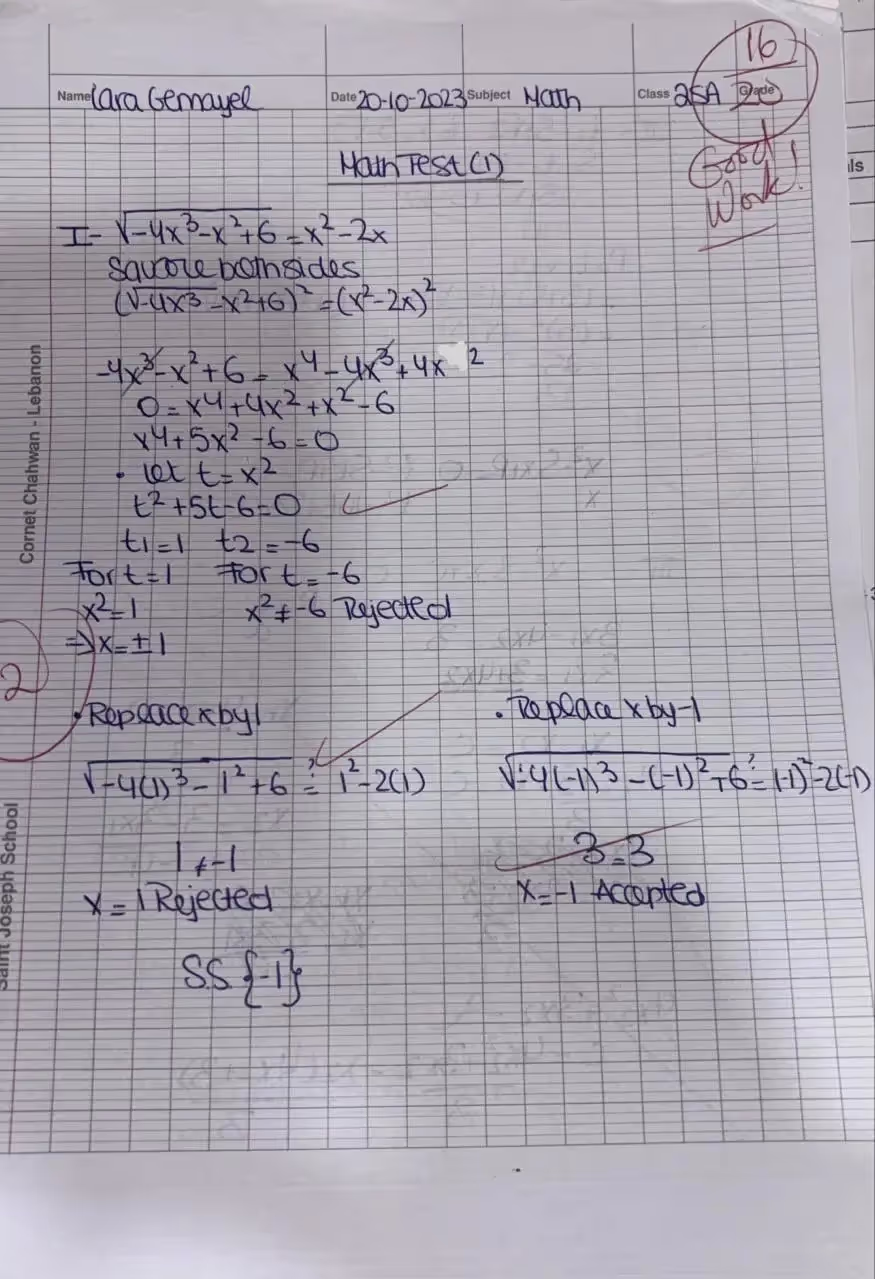 16
Name Lara Gemayel Date 20-10-2023 Subject Math Class 2SA Grade 20
Good Work!
Math Test (1)
I- √-4x³-x²+6 = x²-2x
Square both sides
(√-4x³-x²+6)² = (x²-2x)²
-4x³-x²+6 = x⁴-4x³+4x ²
0 = x⁴+4x²+x²-6
x⁴+5x²-6=0
. let t=x²
t²+5t-6=0
t1=1 t2=-6
For t=1 For t=-6
x²=1 x²≠-6 Rejected
⇒x=±1
2
. Replace x by 1 . Replace x by -1
√-4(1)³-1²+6 ?= 1²-2(1) √-4(-1)³-(-1)²+6 ?= (-1)²-2(-1)
1≠-1 3=3
x=1 Rejected x=-1 Accepted
S.S {-1}
Cornet Chahwan - Lebanon
Saint Joseph School
ls